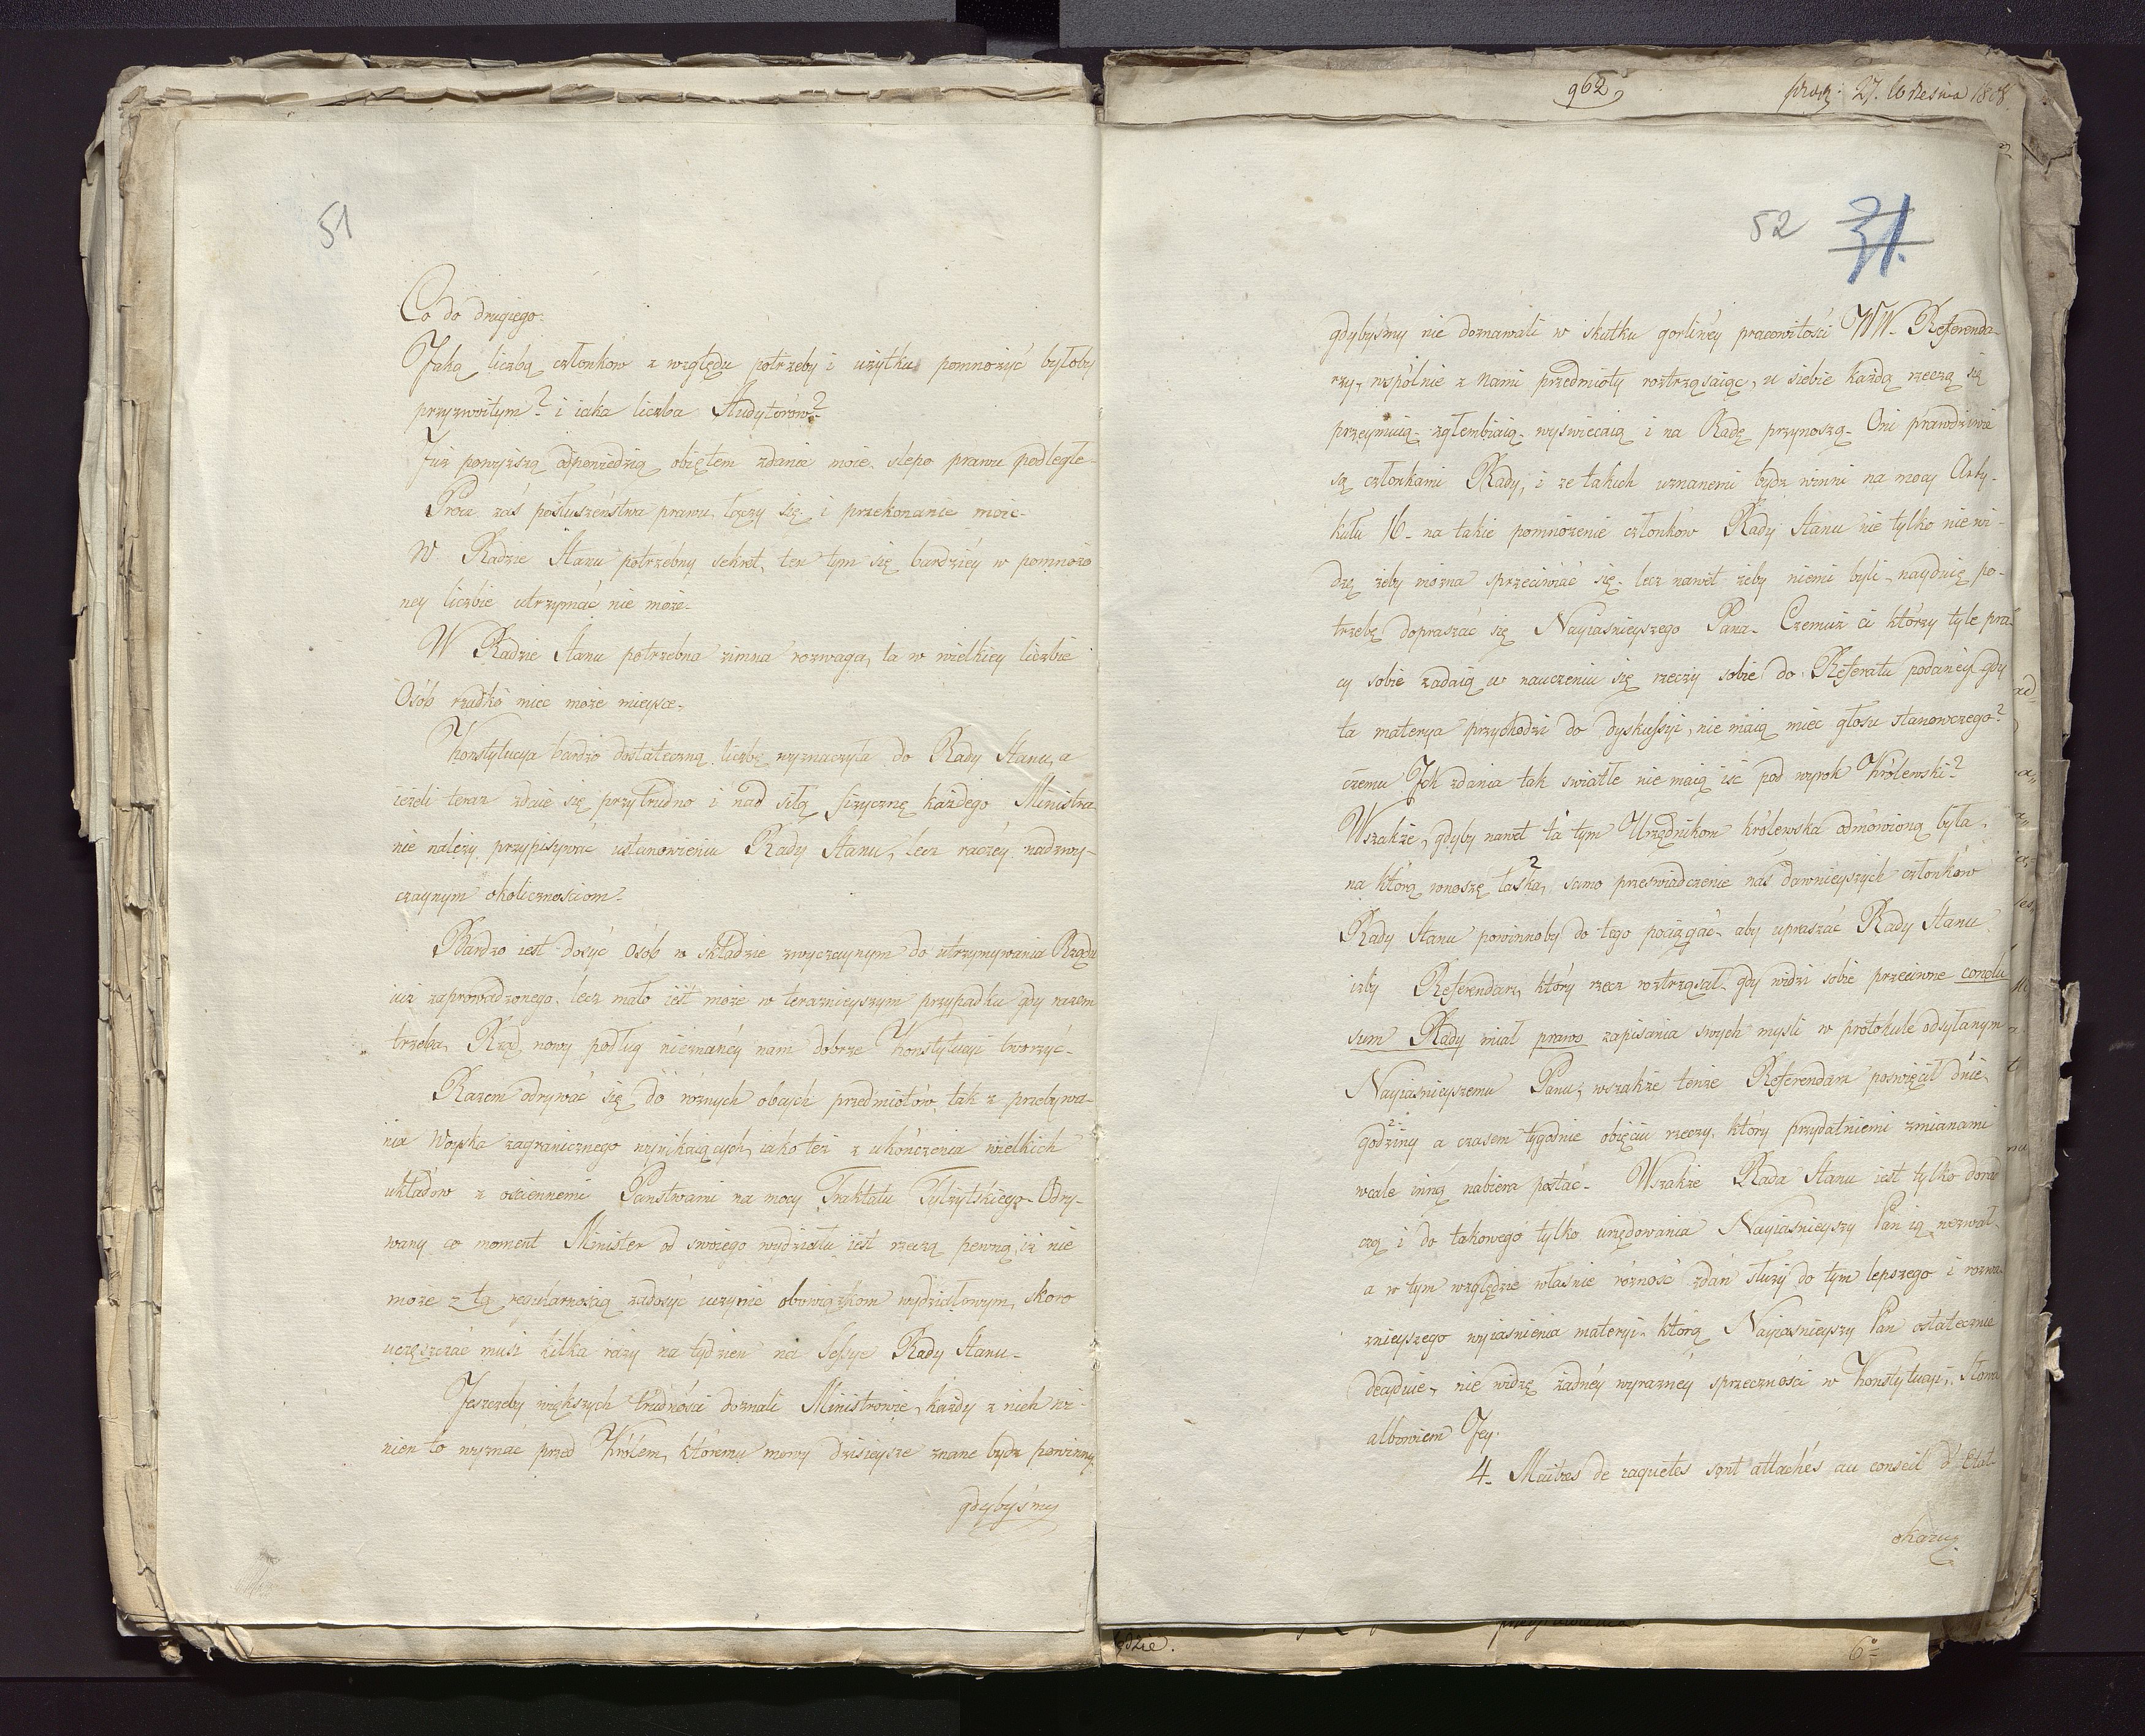 51
Co do drugiego.
Jaką liczbą członkow z względu potrzeby i użytku pomnożyć byłoby
przyzwoitym? i iaka liczba Audytorów?
Już powyższą odpowiedzią obiąłem zdanie moie, slepo prawu podległe.
Procz zaś posłuszeństwa prawu łączy się i przekonanie moie.
W Radzie Stanu potrzebny sekret, ten tym się bardziéy w pomnożo
ney liczbie utrzymać nie może.
W Radzie Stanu potrzebna zimna rozwaga, ta w wielkiey liczbie
Osób rzadko miec może mieysce.
Konstytucya bardzo dostateczną liczbę wyznaczyła do Rady Stanu, a
ieżeli teraz zdaie się przytrudno i nad siłę fizyczną każdego Ministra
nie należy przypisywać ustanowieniu Rady Stanu, lecz raczéy nadzwy-
czaynym okolicznosciom.
Bardzo iest dosyć osób w składzie zwyczaynym do utrzymywania Rządu
iuż zaprowadzonego, lecz mało iest może w teraznieyszym przypadku gdy razem
trzeba Rząd nowy podług nieznanéy nam dobrze Konstytucyi tworzyć.
Razem odrywać się do róznych obcych przedmiotów, tak z przebywa-
nia Woyska zagranicznego wynikaiących, iako też z ukończenia wielkich
układów z osciennemi Panstwami na mocy Traktatu Tylżytskiego. Odry-
wany co moment Minister od swoiego wydziału iest rzeczą pewną, iż nie
może z tą regularnoscią zadosyć uczynić obowiązkom wydziałowym, skoro
uczęszczać musi kilka razy na tydzien na Sessye Rady Stanu.
Jeszczeby większych trudności doznali Ministrowie, każdy z nich wi-
nien to wyznać przed Królem, któremu mowy dzisieysze znane bydz powinny
gdybyśmy
962
27. Wrzesnia 1808.
52 31.
gdybyśmy nie doznawali w skutku gorliwéy pracowitości WW. Referenda-
rzy, wspólnie z Nami przedmioty roztrząsaiąc, u siebie każdą rzeczą się
przeymuią, zgłembiaią, wyswiecaią i na Radę przynoszą. Oni prawdziwie
są członkami Rady, i ze takich uznanemi bydz winni na mocy Arty-
kułu 16. na takie pomnożenie członków Rady Stanu nie tylko nie wi-
dzę żeby można sprzeciwiać się, lecz nawet żeby niemi byli, nayduię po-
trzebę dopraszać się Nayiasnieyszego Pana. Czemuż ci którzy tyle pra-
cy sobie zadaią w nauczeniu się rzeczy sobie do Referatu podanéy, gdy
ta materya przychodzi do dyskussyi, nie maią miec głosu stanowczego?
czemu Ich zdania tak swiatłe nie maią iść pod wyrok Królewski?
Wszakże, gdyby nawet ta tym Urzędnikom królewska odmówioną była
na którą wnoszę łaska, samo przeswiadczenie nas dawnieyszych członków
Rady Stanu powinnoby do tego pociągać, aby upraszać Rady Stanu
iżby Referendarz, który rzecz roztrząsał, gdy widzi sobie przeciwne conclu
sum Rady miał prawo zapisania swych mysli w protokule odsyłanym
Nayiasnieyszemu Panu, wszakże tenże Referendarz poswięcił dnie,
godziny a czasem tygodnie obięciu rzeczy, który przydatniemi zmianami
wcale inną nabiera postać. Wszakże Rada Stanu iest tylko dorad
czą i do takowego tylko urzędowania Nayiasnieyszy Pan ią wezwał,
a w tym względzie własnie różność zdan służy do tym lepszego i rozwa
znieyszego wyiasnienia materyi, którą Nayiasnieyszy Pan ostatecznie
decyduie, nie widzę żadnéy wyraznéy sprzeczności w Konstytucyi, słowa
albowiem Jey.
4. Maitres de raquetes sont attachés au conseil d'Etat.
okazuią
6°